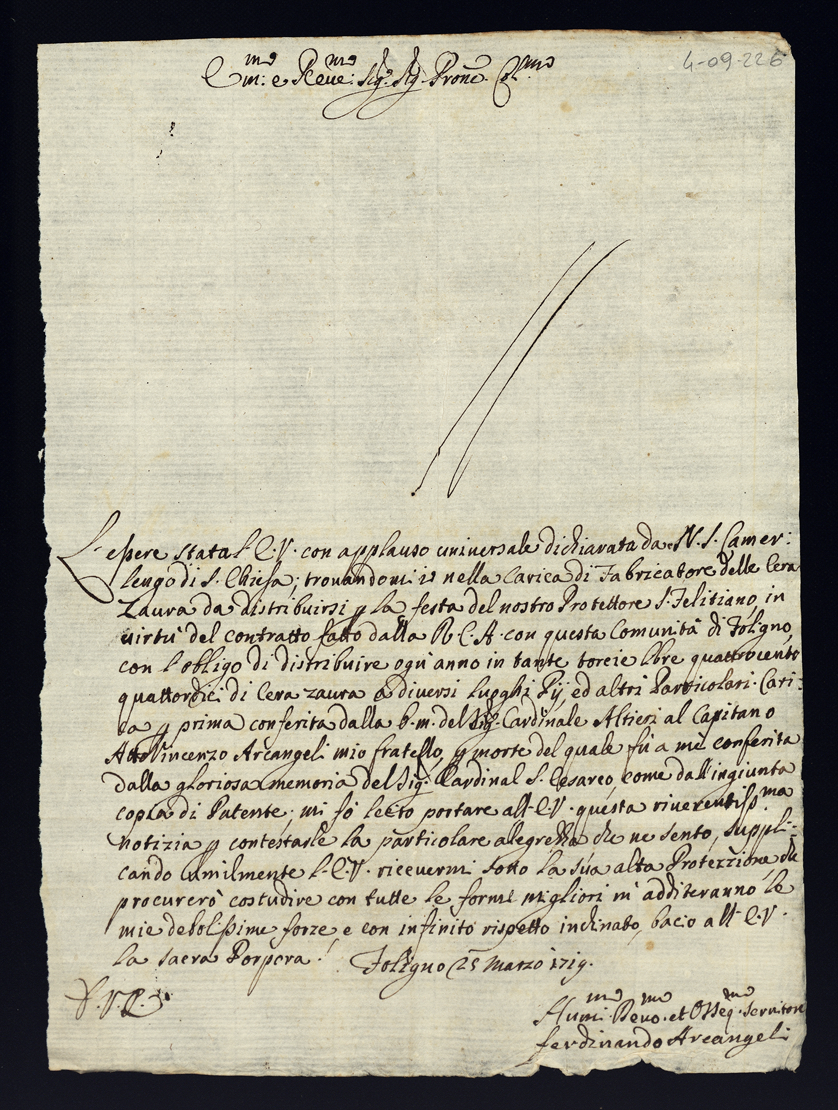 4-09-226
Em:mo e Reve:mo Sig.r Sig.r Prone. Col.mo
L'essere stata l'E.V. con applauso universale dichiarata da N. S. Camer:
lengo di S. Chiesa; trovandomi io nella Carica di Fabricatore delle Cera
Zaura da distribuirsi p la festa del nostro Protettore S. Felitiano, in
virtù del contratto fatto dalla R. C. A. con questa Comunità di Foligno,
con l'obligo di distribuire ogn'anno in tante torcie libre quattrocento
quattordici di Cera zaura a diversi luoghi Pij, ed altri Particolari. Cari:
ca p prima conferita dalla b. m. del Sig. Cardinale Altieri al Capitano
Vincenzo Arcangeli mio fratello, p morte del quale fù a mè conferita
dalla gloriosa memoria del Sig. Cardinal S. Cesareo, come dall'ingiunta
copia di Patente; mi fò lecito portare all'E.V. questa riverentiss.ma
notizia p contestarle la particolare alegrezza che ne sento, suppli:
cando umilmente l'E.V. ricevermi sotto la sùa alta Protezzione, che
procurerò costudire con tutte le forme migliori m'additeranno le
mie debolissime forze, e con infinito rispetto inclinato, bacio all'E.V.
la sacra Porpora. Foligno 25 Marzo 1719.
Humi.mo Devo.mo et Osseq.mo Servitore
Ferdinando Arcangeli